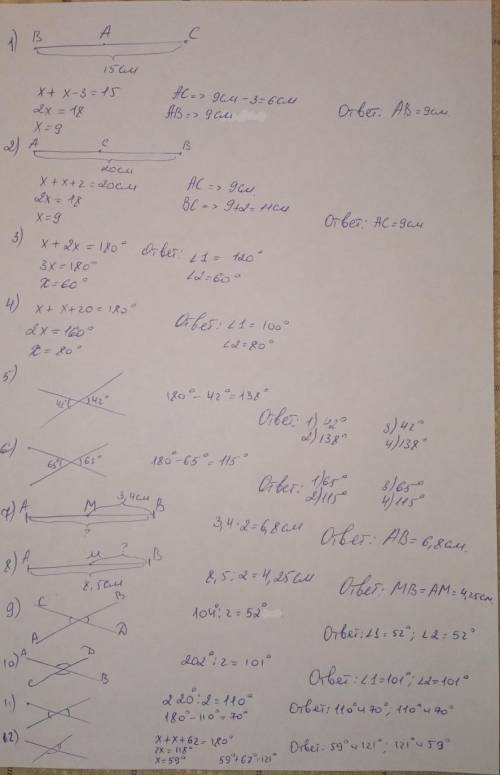 1) B A C
15см
x + x-3 = 15 AC => 9см-3=6см
2x = 18 AB => 9см Ответ: AB=9см.
x=9
2) A C B
20см
x + x+2 = 20см AC => 9см
2x = 18 BC => 9+2=11см
x=9 Ответ: AC=9см
3) x + 2x = 180° Ответ: ∠1 = 120°
3x=180° ∠2=60°
x=60°
4) x + x+20=180° Ответ: ∠1=100°
2x=160° ∠2=80°
x=80°
5) 42° 42° 180°-42°=138° Ответ: 1) 42° 3) 42°
2) 138° 4) 138°
6) 65° 65° 180°-65°=115° Ответ: 1) 65° 3) 65°
2) 115° 4) 115°
7) A M 3,4см B
? 3,4·2=6,8см Ответ: AB=6,8см.
8) A M ? B
8,5см 8,5:2=4,25см Ответ: MB=AM=4,25см
9) C B 104°:2=52°
A D Ответ: ∠1=52°; ∠2=52°
10) A D 202°:2=101°
C B Ответ: ∠1=101°; ∠2=101°
11) 220°:2=110° Ответ: 110° и 70°, 110° и 70°
180°-110°=70°
12) x+x+62=180° Ответ: 59° и 121°; 121° и 59°
2x=118°
x=59° 59°+62°=121°